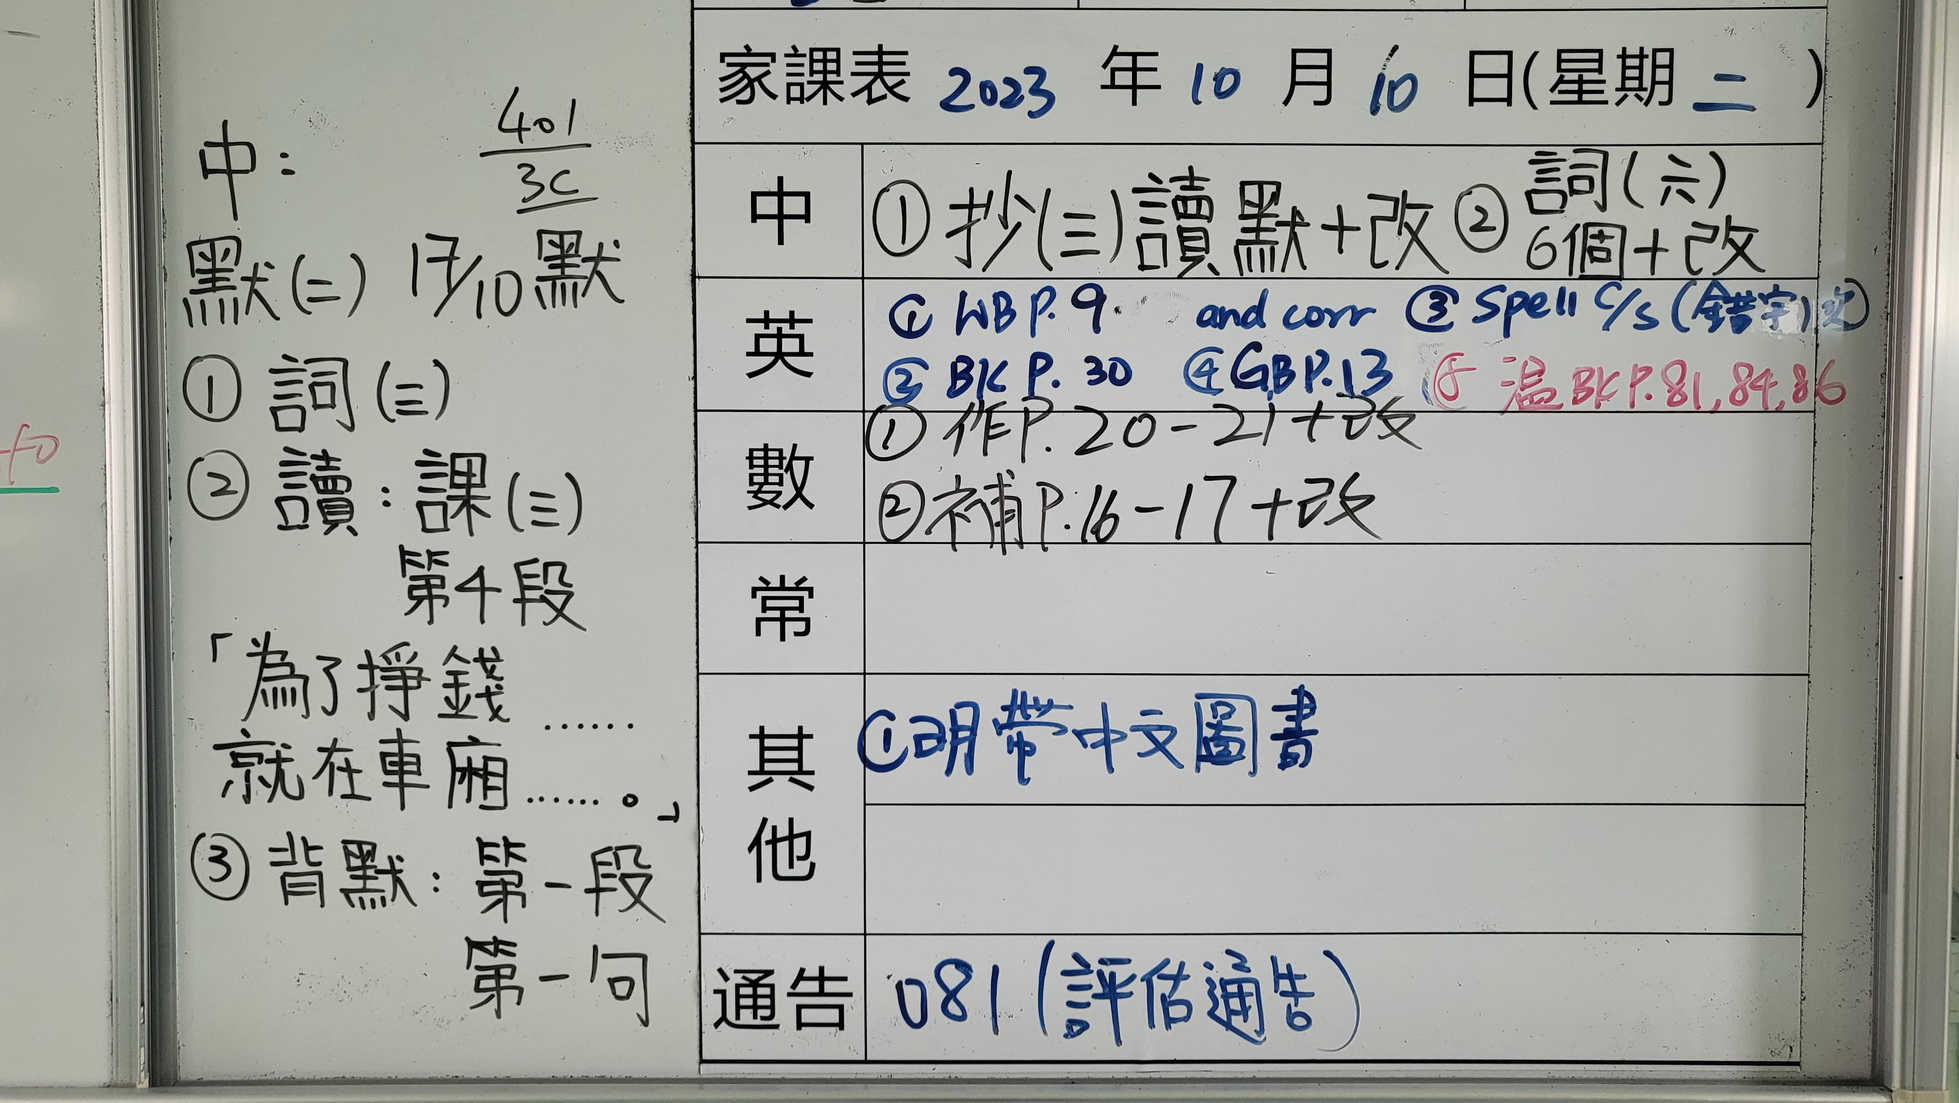 中：
401
3C
默(二) 17/10默
① 詞(三)
② 讀：課(三)
第4段
「為了掙錢……
就在車廂……。」
③ 背默：第一段
第一句
家課表 2023 年 10 月 10 日(星期 二 )
中 ① 抄(三)讀默+改 ② 詞(六)
6個+改
英 ① WB P.9. and corr ③ Spell c/s (錯字)
② BK P.30 ④ GB P.13 ⑤ 温 BK P.81,84,86
數 ① 作P.20-21+改
② 補P.16-17+改
常
其他 ① 明帶中文圖書
通告 081 (評估通告)